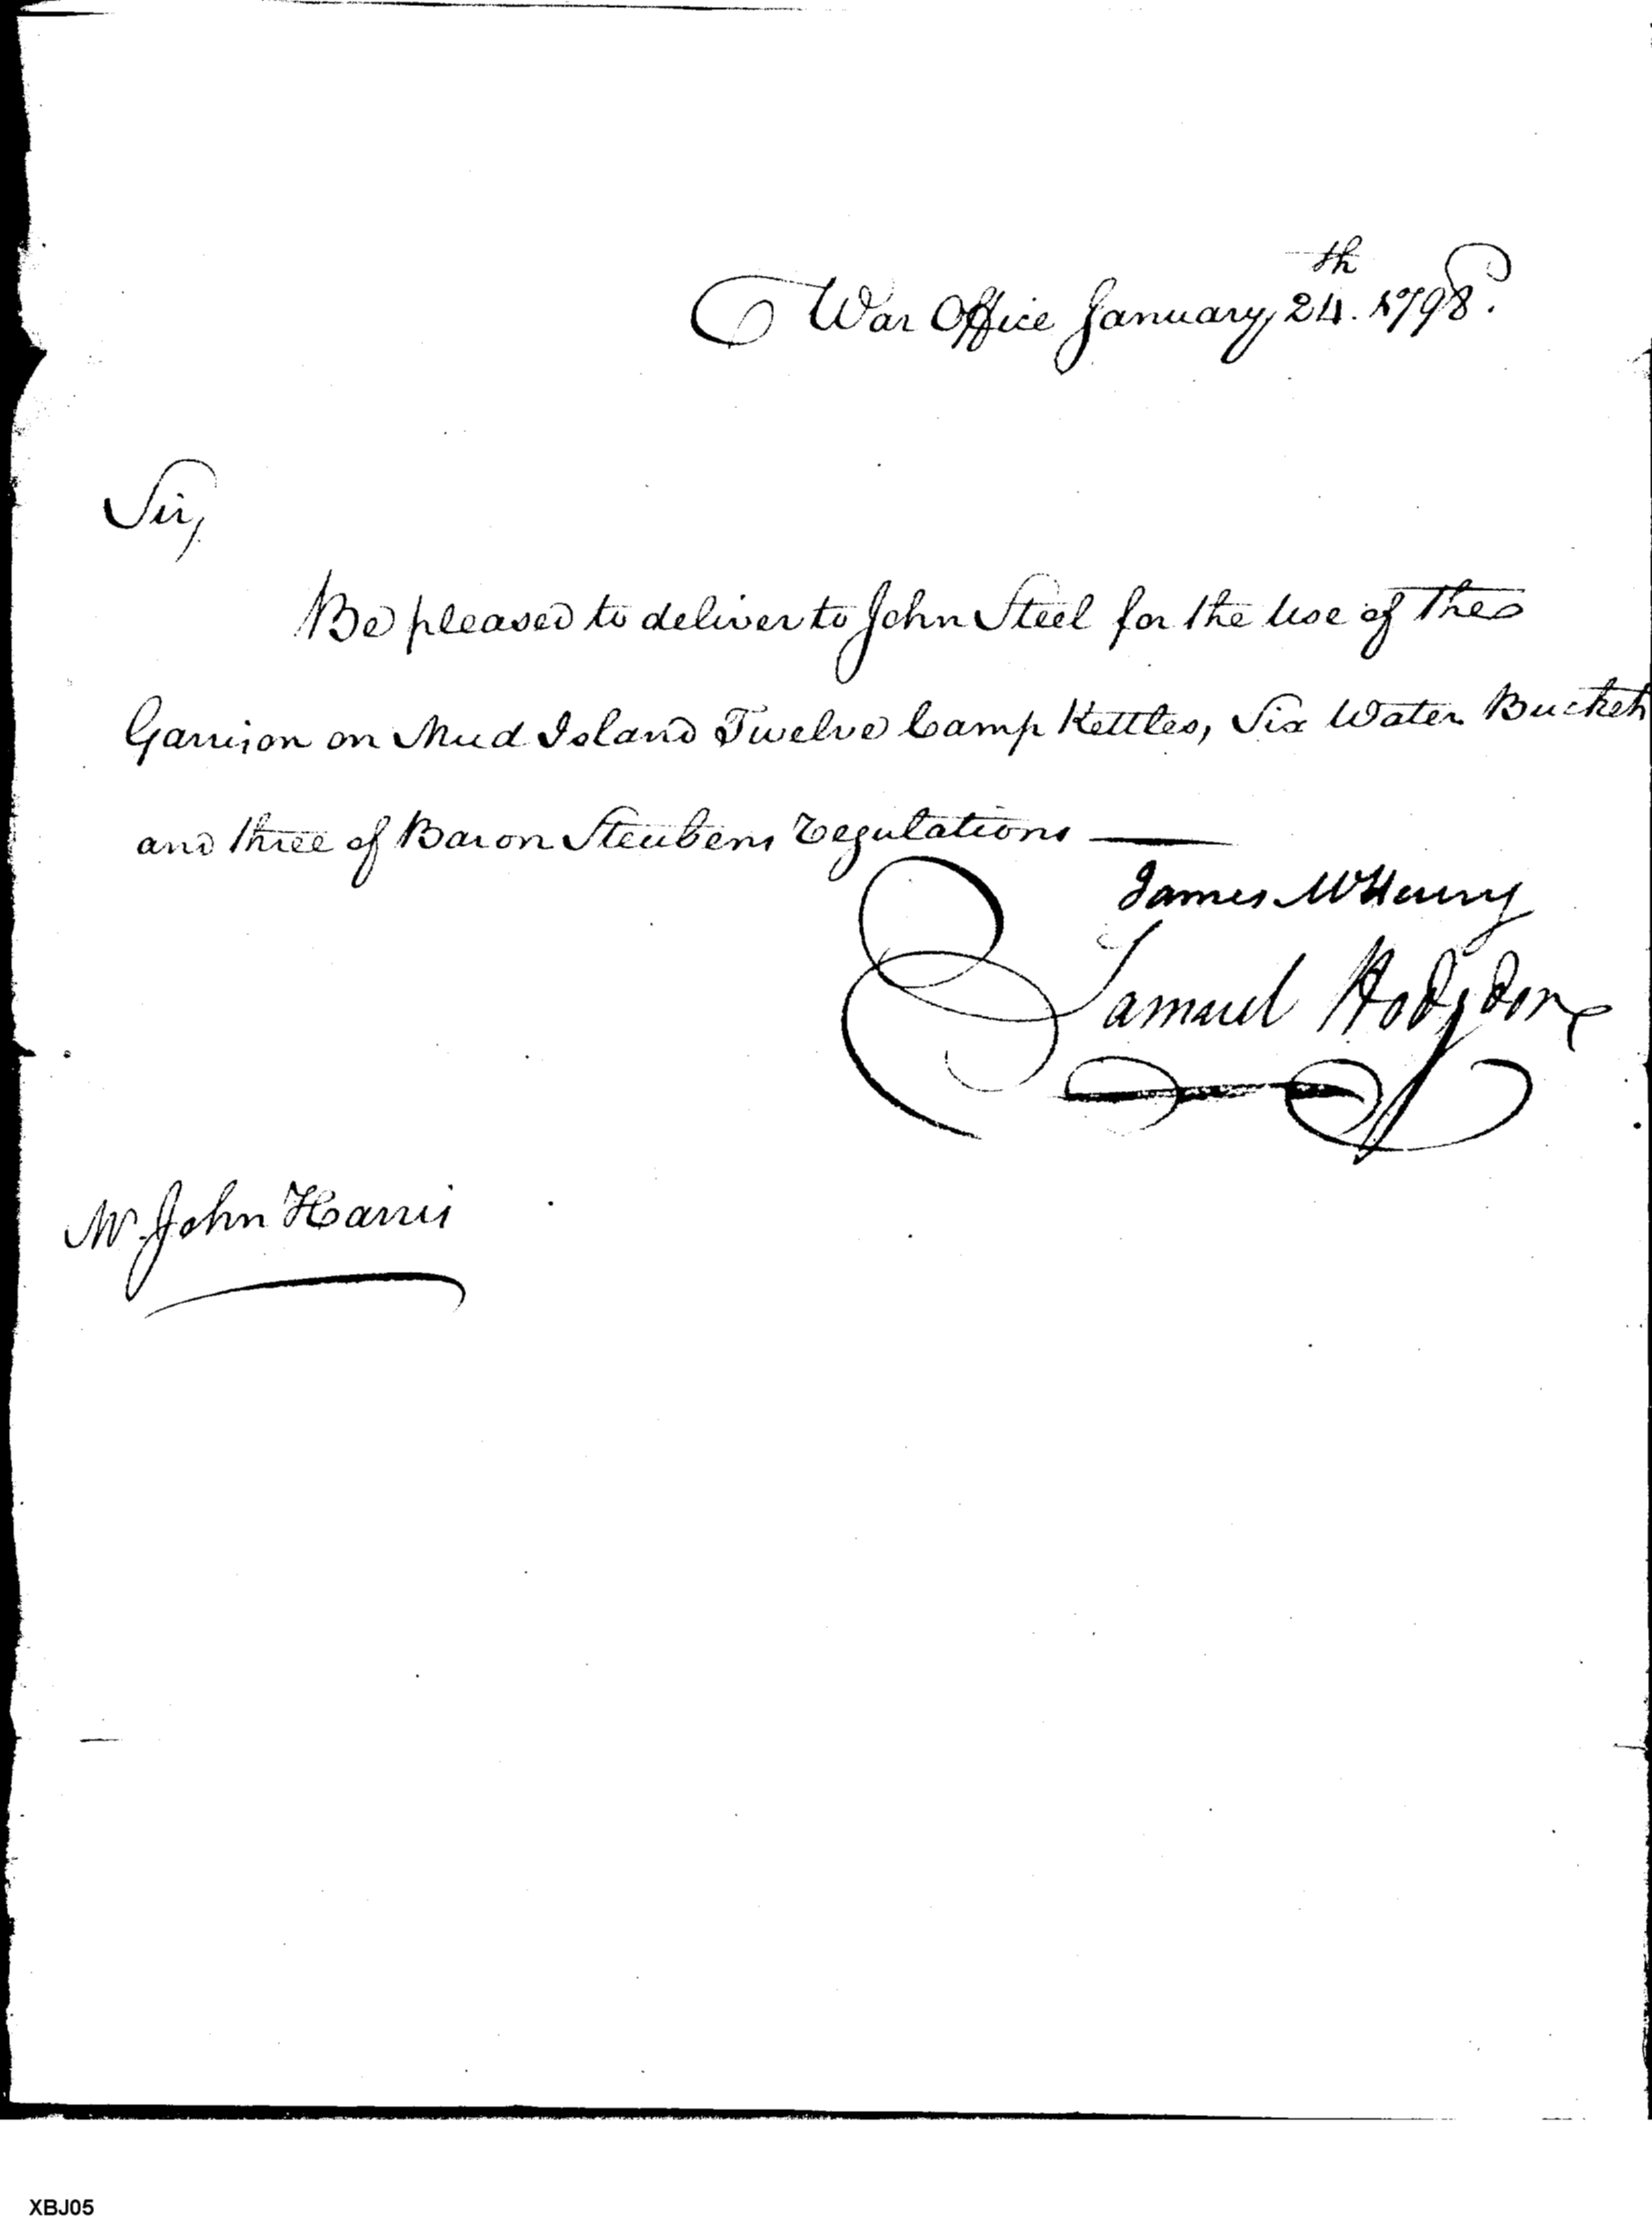 War Office January 24th. 1798.
Sir,
Be pleased to deliver to John Steel for the Use of the
Garrison on Mud Island Twelve Camp Kettles, Six Water Buckets
and three of Baron Steubens regulations —
James McHenry
Samuel Hodgdon
Mr. John Harris
XBJ05